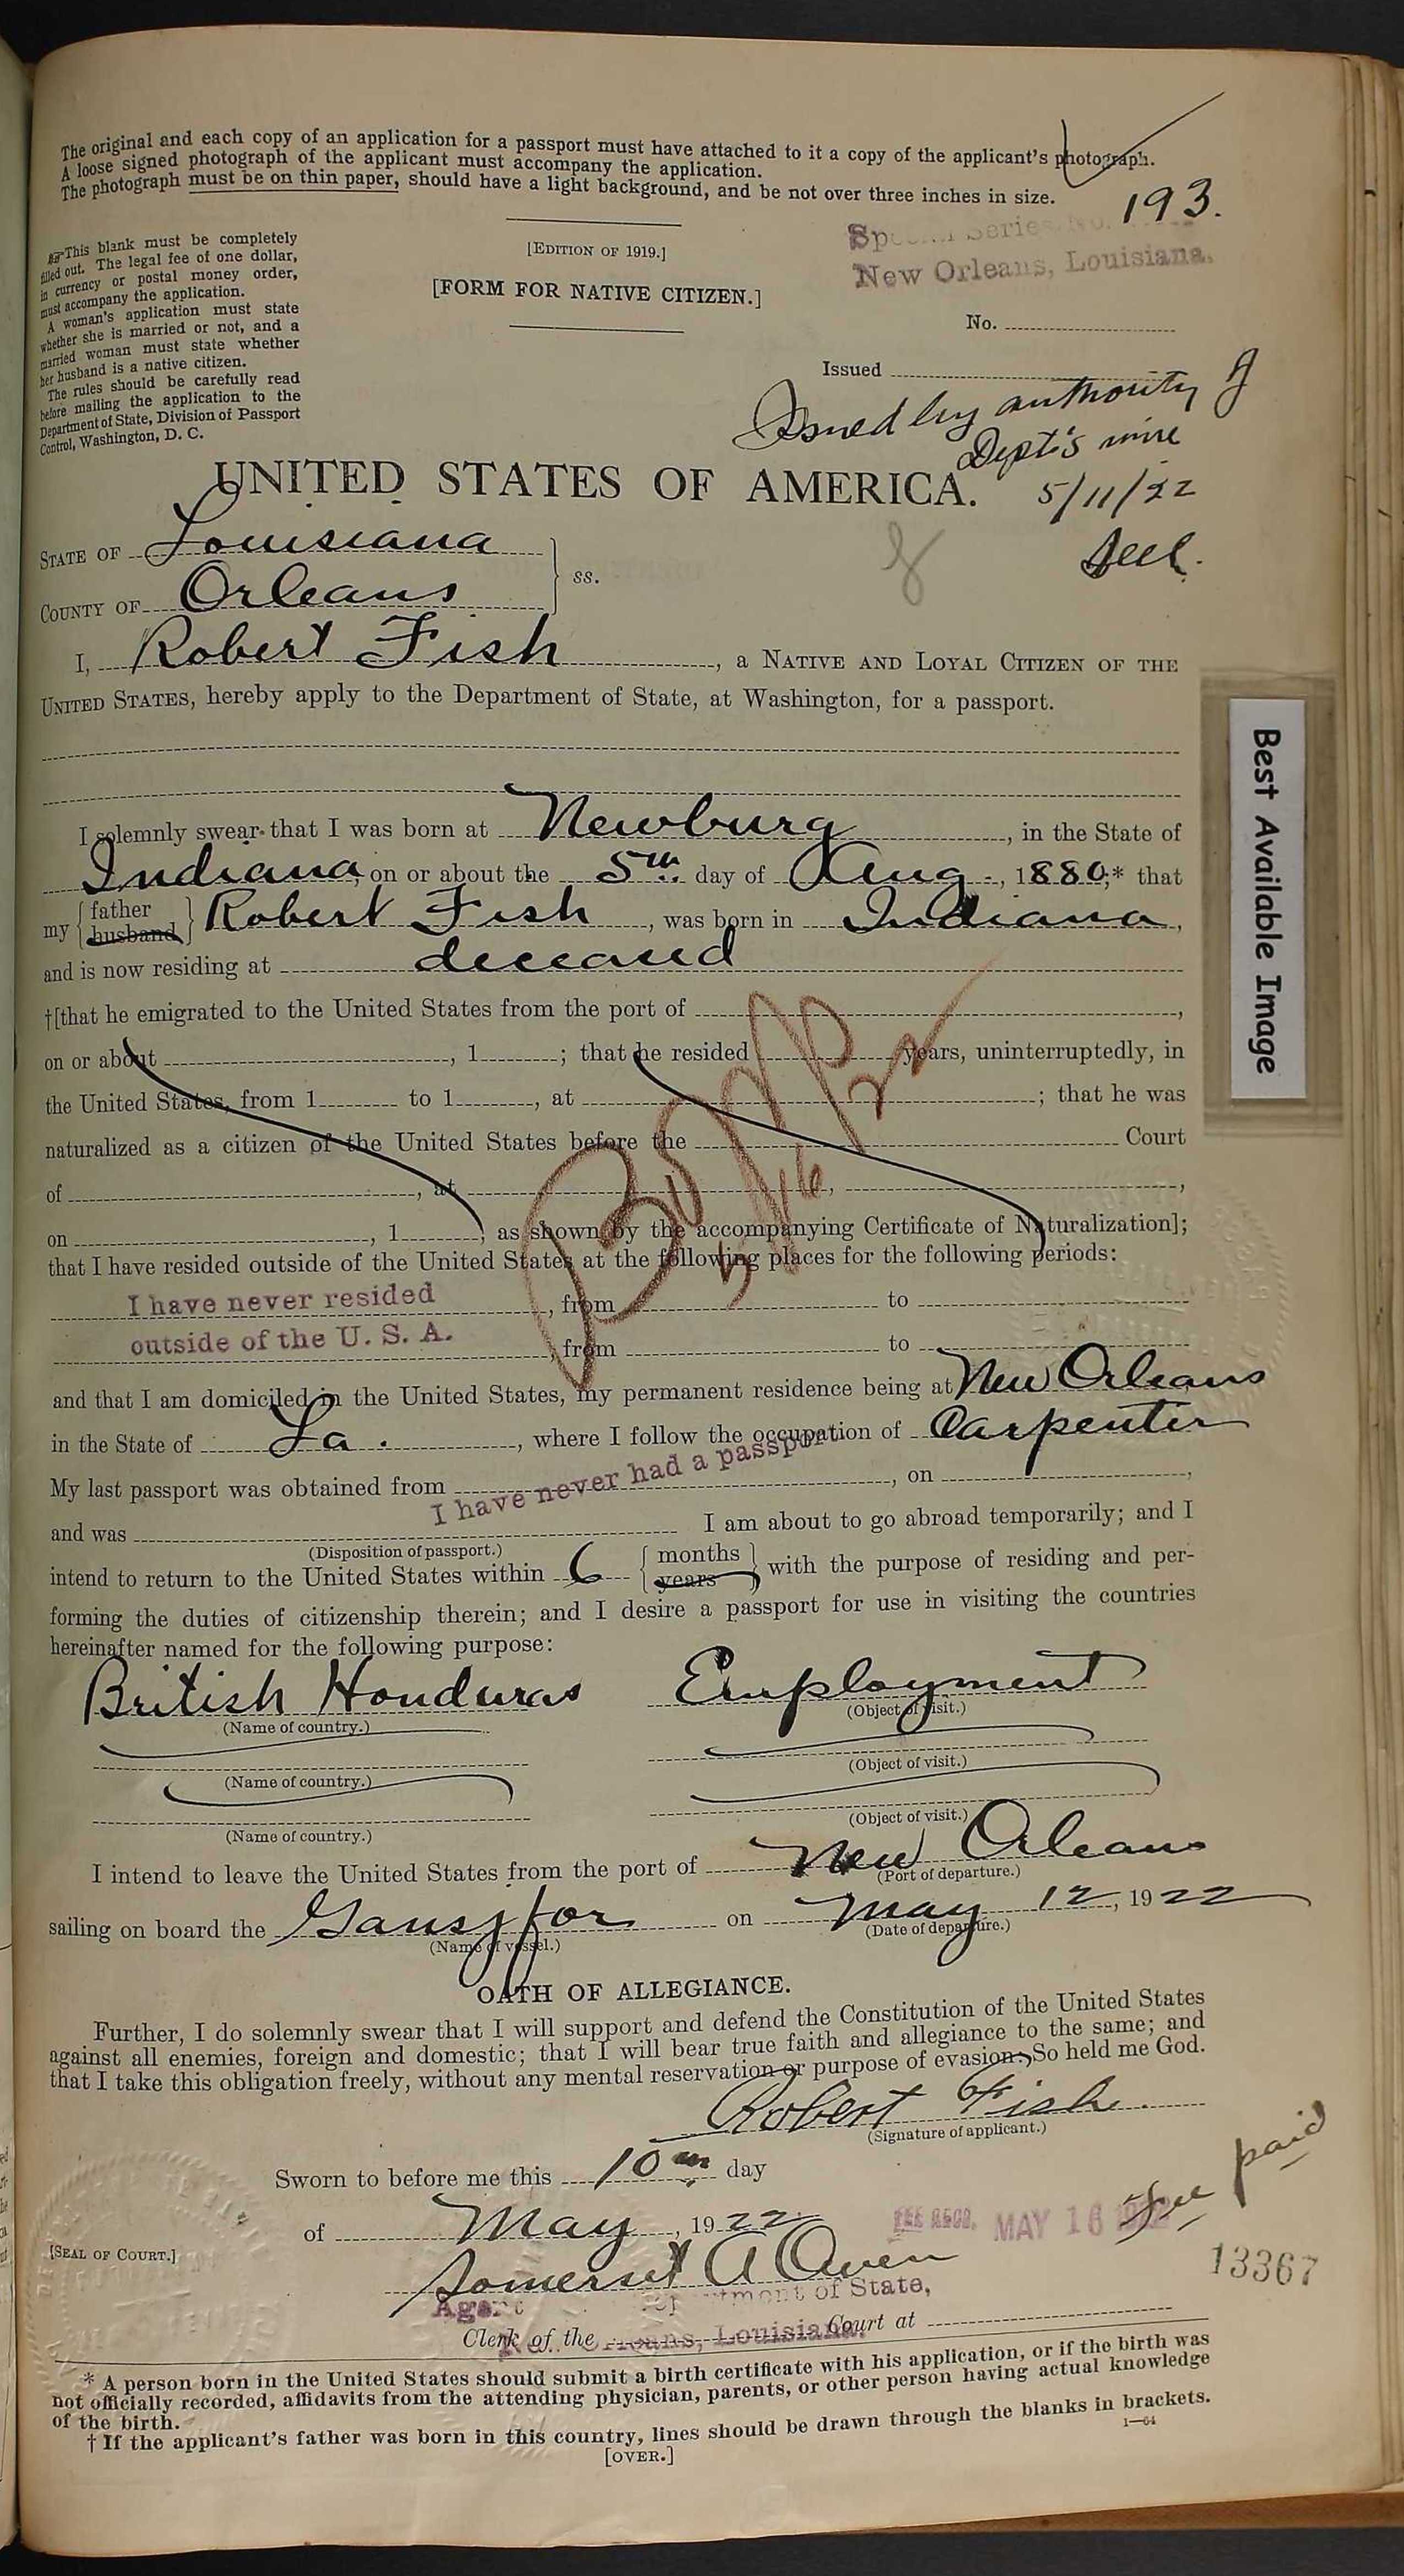 The original and each copy of an application for a passport must have attached to it a copy of the applicant's photograph.
A loose signed photograph of the applicant must accompany the application.
The photograph must be on thin paper, should have a light background, and be not over three inches in size.
193.
[EDITION OF 1919.]
[FORM FOR NATIVE CITIZEN.]
☞This blank must be completely
filled out. The legal fee of one dollar,
in currency or postal money order,
must accompany the application.
A woman's application must state
whether she is married or not, and a
married woman must state whether
her husband is a native citizen.
The rules should be carefully read
before mailing the application to the
Department of State, Division of Passport
Control, Washington, D. C.
Special Series No.
New Orleans, Louisiana.
No.
Issued
Issued by authority of
Dept's wire
5/11/22
UNITED STATES OF AMERICA.
STATE OF Louisiana
COUNTY OF Orleans
ss.
I, Robert Fish, a NATIVE AND LOYAL CITIZEN OF THE
UNITED STATES, hereby apply to the Department of State, at Washington, for a passport.
I solemnly swear that I was born at Newburg, in the State of
Indiana, on or about the 5th day of Aug., 1880;* that
my {father husband} Robert Fish, was born in Indiana,
and is now residing at deceased
†[that he emigrated to the United States from the port of ,
on or about , 1 ; that he resided years, uninterruptedly, in
the United States, from 1 to 1 , at ; that he was
naturalized as a citizen of the United States before the Court
of , at , ,
on , 1 , as shown by the accompanying Certificate of Naturalization];
that I have resided outside of the United States at the following places for the following periods:
I have never resided , from to
outside of the U. S. A. , from to
and that I am domiciled in the United States, my permanent residence being at New Orleans
in the State of La. , where I follow the occupation of Carpenter
My last passport was obtained from I have never had a passport , on ,
and was I am about to go abroad temporarily; and I
(Disposition of passport.)
intend to return to the United States within 6 {months years} with the purpose of residing and per-
forming the duties of citizenship therein; and I desire a passport for use in visiting the countries
hereinafter named for the following purpose:
British Honduras Employment
(Name of country.) (Object of visit.)
(Name of country.) (Object of visit.)
(Name of country.) (Object of visit.)
I intend to leave the United States from the port of New Orleans
(Port of departure.)
sailing on board the Gansfjor on May 12, 1922
(Name of vessel.) (Date of departure.)
OATH OF ALLEGIANCE.
Further, I do solemnly swear that I will support and defend the Constitution of the United States
against all enemies, foreign and domestic; that I will bear true faith and allegiance to the same; and
that I take this obligation freely, without any mental reservation or purpose of evasion: So held me God.
Robert Fish
(Signature of applicant.)
Sworn to before me this 10th day
of May, 1922
[SEAL OF COURT.]
FEE RECD. MAY 16
Fee paid
13367
Somerset A Owen
Department of State,
New Orleans, Louisiana.
Clerk of the Court at
* A person born in the United States should submit a birth certificate with his application, or if the birth was
not officially recorded, affidavits from the attending physician, parents, or other person having actual knowledge
of the birth.
† If the applicant's father was born in this country, lines should be drawn through the blanks in brackets.
1—64
[OVER.]
Best Available Image